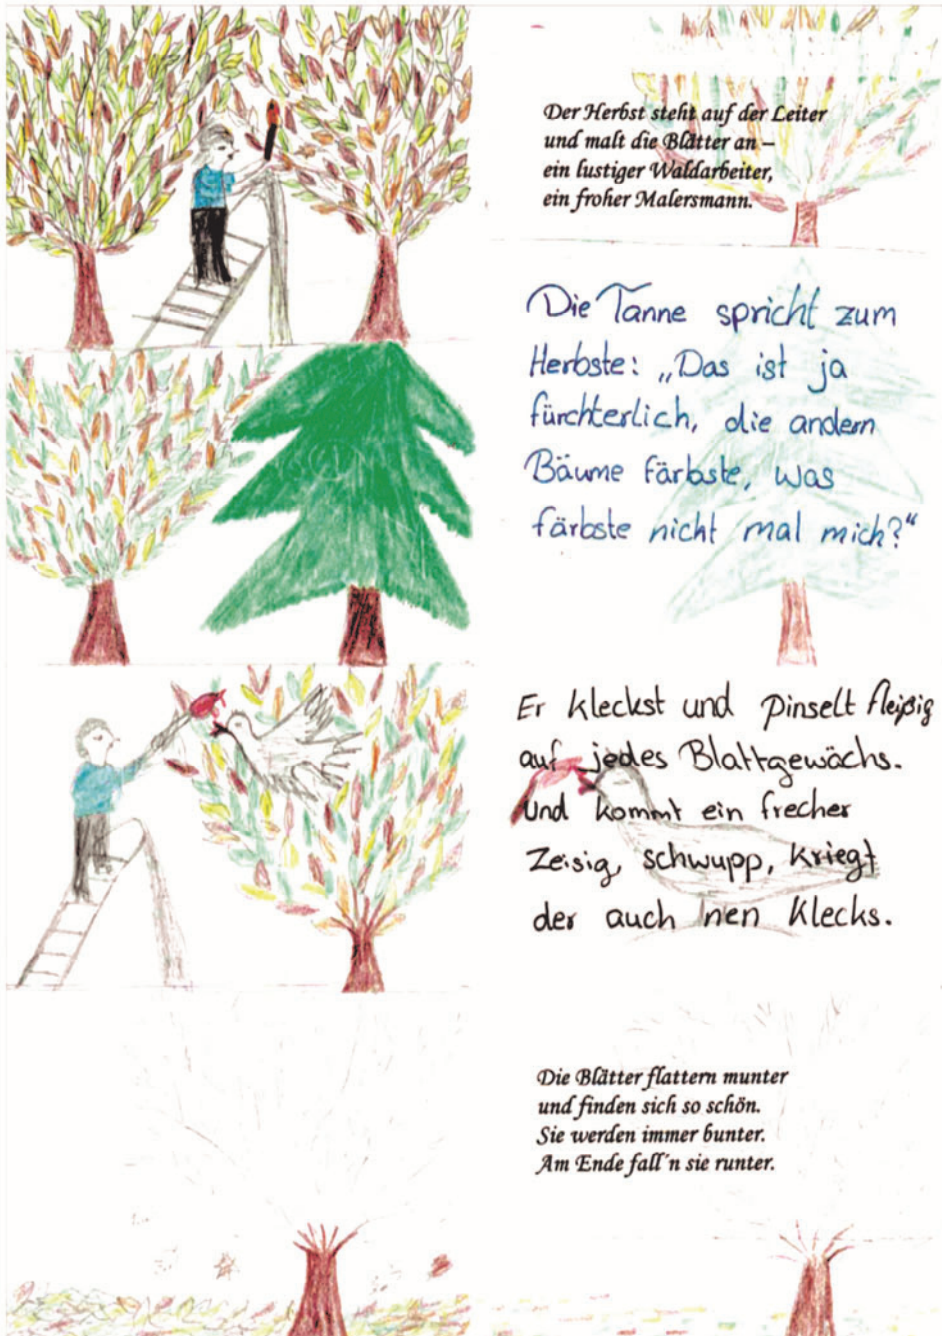 Der Herbst steht auf der Leiter
und malt die Blätter an –
ein lustiger Waldarbeiter,
ein froher Malersmann.
Die Tanne spricht zum
Herbste: „Das ist ja
fürchterlich, die andern
Bäume färbste, was
färbste nicht mal mich?“
Er kleckst und pinselt fleißig
auf jedes Blattgewächs.
Und kommt ein frecher
Zeisig, schwupp, kriegt
der auch 'nen Klecks.
Die Blätter flattern munter
und finden sich so schön.
Sie werden immer bunter.
Am Ende fall´n sie runter.